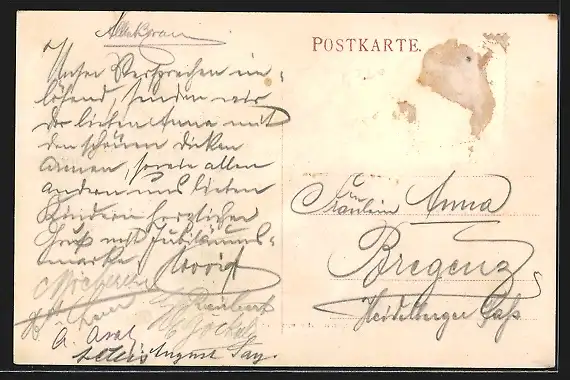 POSTKARTE.
Unser Versprechen ein-
lösend, senden wir
der lieben Anna mit
den schönen dicken
Armen, sowie allen
andern uns lieben
Kindern herzlichen
Gruß mit Jubiläums-
marke
A.
August
Fräulein Anna
Bregenz
Heidelberger Faß